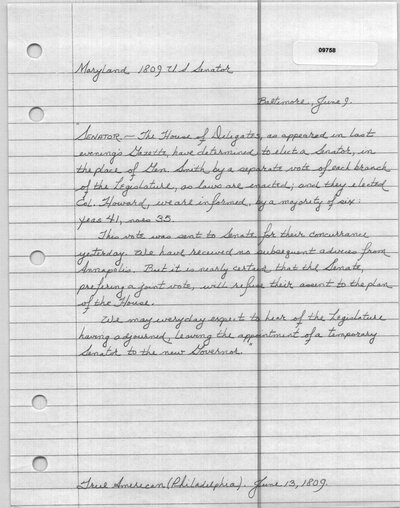 09758
Maryland 1809 U S Senator
Baltimore, June 9.
"SENATOR.— The House of Delegates, as appeared in last
evening's Gazette, have determined to elect a Senator, in
the place of Gen. Smith by a separate vote of each branch
of the Legislature, as laws are enacted; and they elected
Col. Howard, we are informed, by a majority of six:
yeas 41, noes 35.
This vote was sent to Senate for their concurrance
yesterday. We have received no subsequent advices from
Annapolis. But it is nearly certain that the Senate,
prefering a joint vote, will refuse their assent to the plan
of the House.
We may everyday expect to hear of the Legislature
having adjourned, leaving the appointment of a temporary
Senator to the new Governor."
True American (Philadelphia). June 13, 1809.